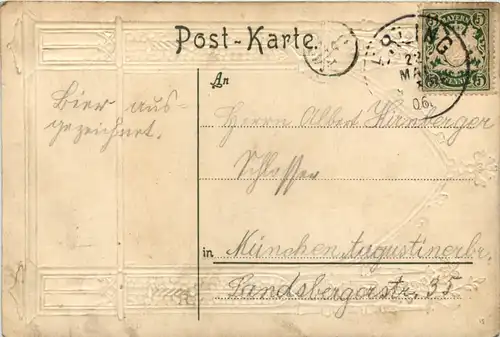 Post-Karte.
BAYERN
5 5
PFENNIG
22
MAI
06
An
Bier aus=
gezeichnet.
Herrn Albert Hirnberger
Schlosser
in München, Augustinerbr.
Landsbergerstr. 35